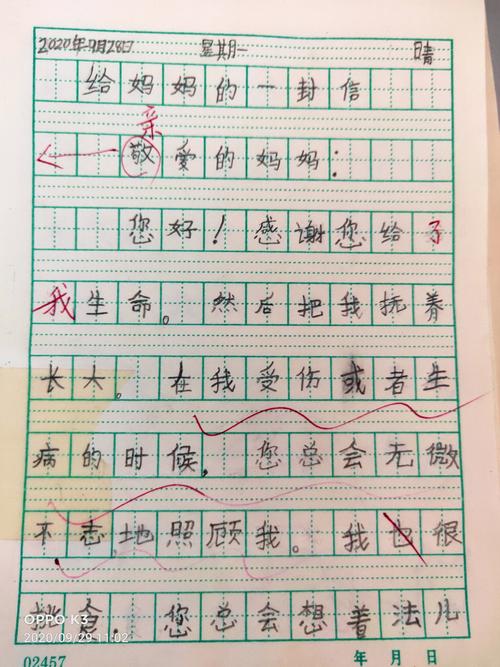 2020年9月28日 星期一 晴
给妈妈的一封信
亲
敬爱的妈妈：
您好！感谢您给了
我生命。然后把我抚养
长大。在我受伤或者生
病的时候，您总会无微
不志地照顾我。我也很
挑食，您总会想着法儿
OPPO K3
2020/09/29 11:02
02457 年 月 日